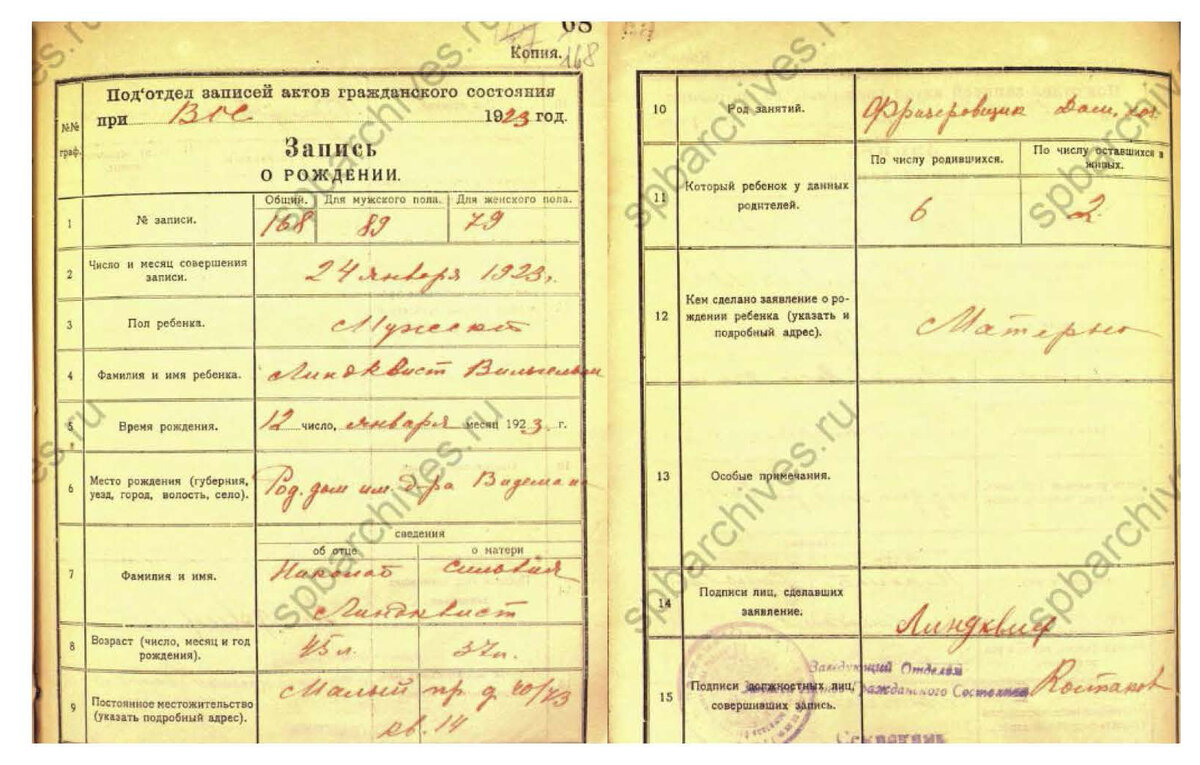 68
Копия.
168
Под'отдел записей актов гражданского состояния
при 1923 год.
№№ граф.
Запись
О РОЖДЕНИИ.
Общий. Для мужского пола. Для женского пола.
1 № записи. 168 89 79
2 Число и месяц совершения записи. 24 января 1923 г.
3 Пол ребенка. Мужской
4 Фамилия и имя ребенка. Линдквист Вильгельм
5 Время рождения. 12 число, января месяц 1923 г.
6 Место рождения (губерния, уезд, город, волость, село). Род. дом им. д-ра Видемана
сведения
об отце о матери
7 Фамилия и имя. Николай Сильвия
Линдквист
8 Возраст (число, месяц и год рождения). 45 л. 37 л.
9 Постоянное местожительство (указать подробный адрес). Малый пр. д. 40/43
кв. 14
10 Род занятий. Фрезеровщик
11 Который ребенок у данных родителей.
По числу родившихся. По числу оставшихся в живых.
6 2
12 Кем сделано заявление о рождении ребенка (указать и подробный адрес). Матерью
13 Особые примечания.
14 Подписи лиц, сделавших заявление. Линдквист
15 Подписи должностных лиц, совершивших запись.
Заведующий Отделом
Гражданского Состояния
Секретарь
spbarchives.ru